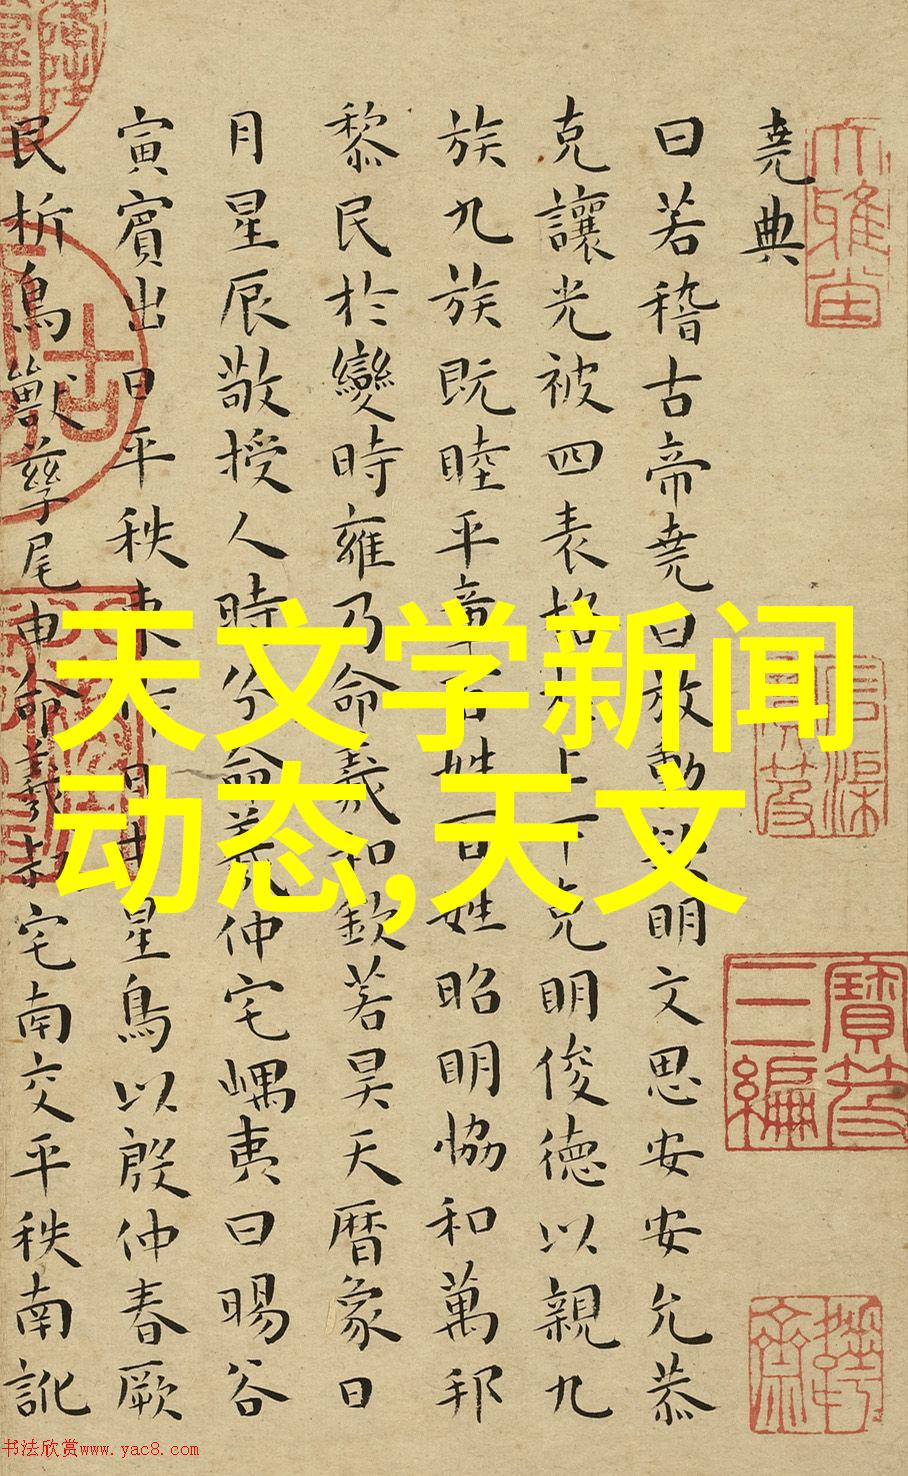 堯典
曰若稽古帝堯曰放勳明文思安安允恭
克讓光被四表格于上下克明俊德以親九
族九族既睦平章百姓百姓昭明恊和萬邦
黎民於變時雍乃命羲和欽若昊天暦象日
月星辰敬授人時分命羲仲宅嵎夷曰暘谷
寅賓出日平秩東作日中星鳥以殷仲春厥
民析鳥獸孳尾申命羲叔宅南交平秩南訛
天文学新闻
动态,天文
寶笈
三編
书法欣赏www.yac8.com